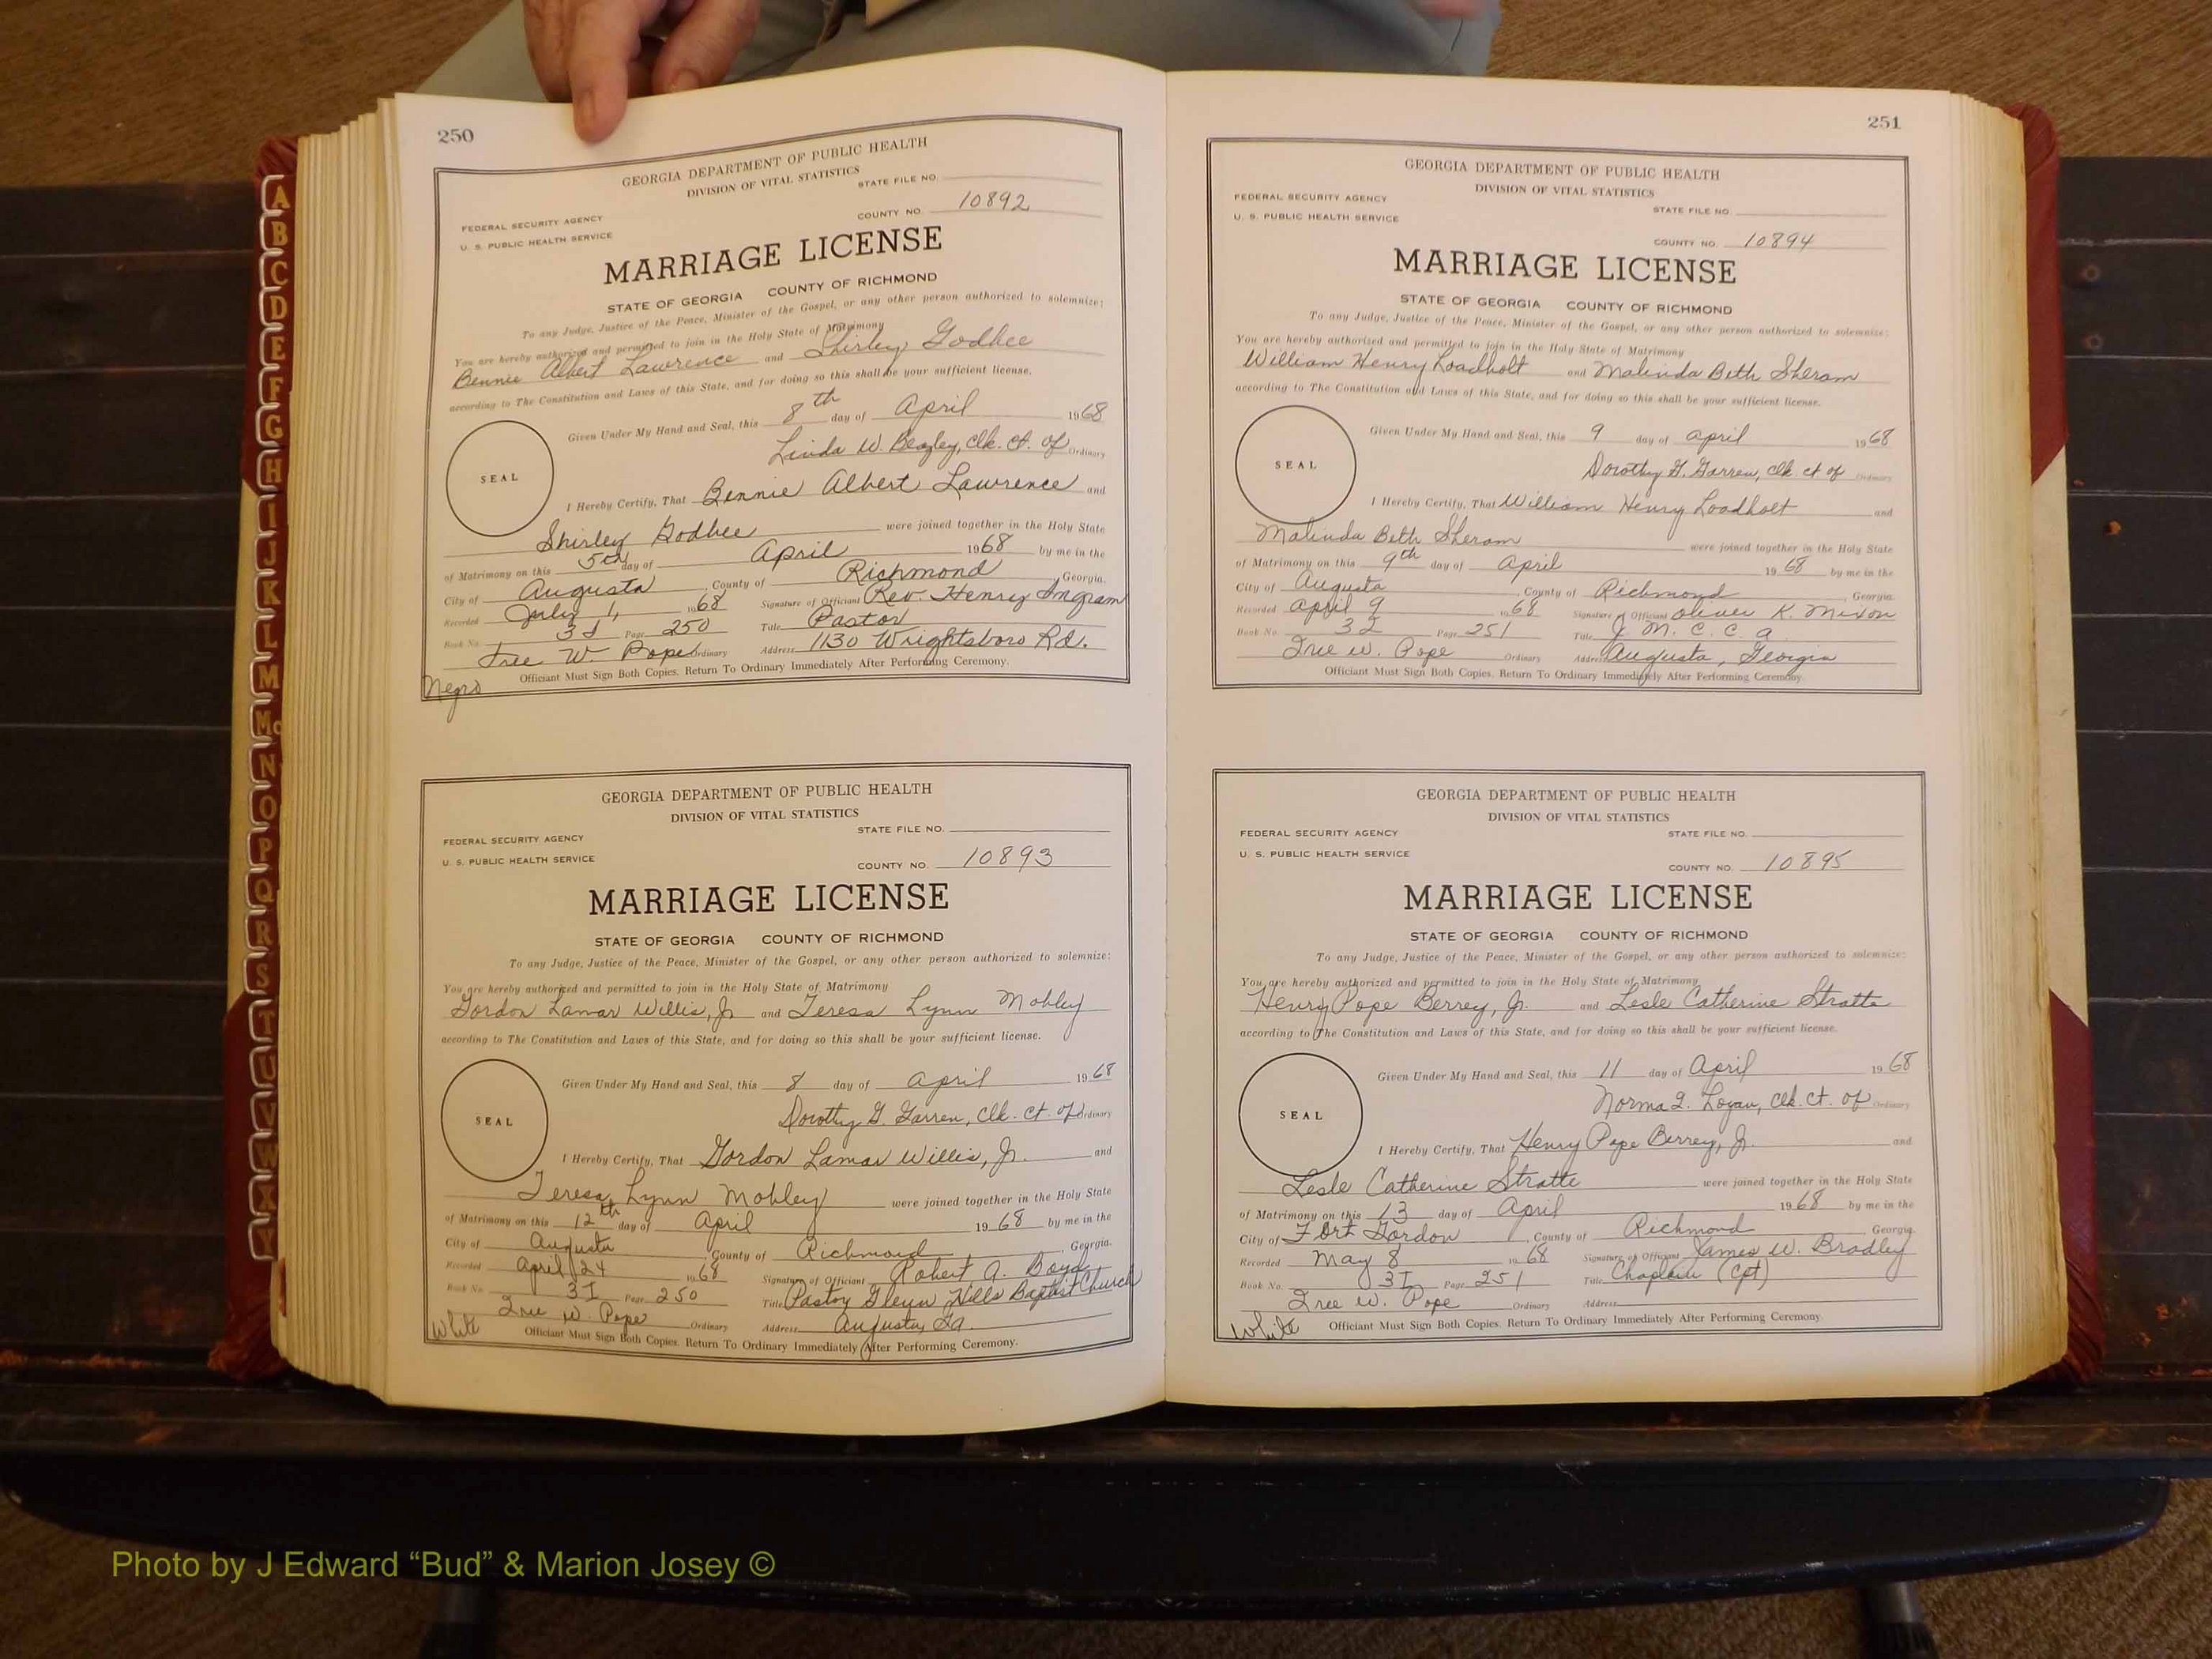 250
GEORGIA DEPARTMENT OF PUBLIC HEALTH
DIVISION OF VITAL STATISTICS
STATE FILE NO.
FEDERAL SECURITY AGENCY
COUNTY NO. 10892
U. S. PUBLIC HEALTH SERVICE
MARRIAGE LICENSE
STATE OF GEORGIA COUNTY OF RICHMOND
To any Judge, Justice of the Peace, Minister of the Gospel, or any other person authorized to solemnize:
You are hereby authorized and permitted to join in the Holy State of Matrimony
Bennie Albert Lawrence and Shirley Godbee
according to The Constitution and Laws of this State, and for doing so this shall be your sufficient license.
Given Under My Hand and Seal, this 8th day of April 1968
Linda W. Beazley, Clk. Ct. of Ordinary
SEAL
I Hereby Certify, That Bennie Albert Lawrence and
Shirley Godbee were joined together in the Holy State
of Matrimony on this 5th day of April 1968 by me in the
City of Augusta, County of Richmond, Georgia.
Recorded July 1, 1968 Signature of Officiant Rev. Henry Ingram
Book No. 3I Page 250 Title Pastor
Tree W. Pope Ordinary Address 1130 Wrightsboro Rd.
Officiant Must Sign Both Copies. Return To Ordinary Immediately After Performing Ceremony.
Negro
GEORGIA DEPARTMENT OF PUBLIC HEALTH
DIVISION OF VITAL STATISTICS
STATE FILE NO.
FEDERAL SECURITY AGENCY
U. S. PUBLIC HEALTH SERVICE
COUNTY NO. 10893
MARRIAGE LICENSE
STATE OF GEORGIA COUNTY OF RICHMOND
To any Judge, Justice of the Peace, Minister of the Gospel, or any other person authorized to solemnize:
You are hereby authorized and permitted to join in the Holy State of Matrimony
Gordon Lamar Willis, Jr. and Teresa Lynn Mobley
according to The Constitution and Laws of this State, and for doing so this shall be your sufficient license.
Given Under My Hand and Seal, this 8 day of April 1968
Dorothy G. Garren, Clk. Ct. of Ordinary
SEAL
I Hereby Certify, That Gordon Lamar Willis, Jr. and
Teresa Lynn Mobley were joined together in the Holy State
of Matrimony on this 12th day of April 1968 by me in the
City of Augusta, County of Richmond, Georgia.
Recorded April 24 1968 Signature of Officiant Robert A. Boyd
Book No. 3I Page 250 Title Pastor Glenn Hills Baptist Church
Tree W. Pope Ordinary Address Augusta, Ga.
White Officiant Must Sign Both Copies. Return To Ordinary Immediately After Performing Ceremony.
251
GEORGIA DEPARTMENT OF PUBLIC HEALTH
DIVISION OF VITAL STATISTICS
FEDERAL SECURITY AGENCY
STATE FILE NO.
U. S. PUBLIC HEALTH SERVICE
COUNTY NO. 10894
MARRIAGE LICENSE
STATE OF GEORGIA COUNTY OF RICHMOND
To any Judge, Justice of the Peace, Minister of the Gospel, or any other person authorized to solemnize:
You are hereby authorized and permitted to join in the Holy State of Matrimony
William Henry Loadholt and Malinda Beth Sheram
according to The Constitution and Laws of this State, and for doing so this shall be your sufficient license.
Given Under My Hand and Seal, this 9 day of April 1968
Dorothy G. Garren, Clk. Ct. of Ordinary
SEAL
I Hereby Certify, That William Henry Loadholt and
Malinda Beth Sheram were joined together in the Holy State
of Matrimony on this 9th day of April 1968 by me in the
City of Augusta, County of Richmond, Georgia.
Recorded April 9 1968 Signature of Officiant Oliver K. Mixon
Book No. 3I Page 251 Title J. M. C. C. a.
Tree W. Pope Ordinary Address Augusta, Georgia
Officiant Must Sign Both Copies. Return To Ordinary Immediately After Performing Ceremony.
GEORGIA DEPARTMENT OF PUBLIC HEALTH
DIVISION OF VITAL STATISTICS
FEDERAL SECURITY AGENCY
STATE FILE NO.
U. S. PUBLIC HEALTH SERVICE
COUNTY NO. 10895
MARRIAGE LICENSE
STATE OF GEORGIA COUNTY OF RICHMOND
To any Judge, Justice of the Peace, Minister of the Gospel, or any other person authorized to solemnize:
You are hereby authorized and permitted to join in the Holy State of Matrimony
Henry Pope Berrey, Jr. and Lesle Catherine Stratte
according to The Constitution and Laws of this State, and for doing so this shall be your sufficient license.
Given Under My Hand and Seal, this 11 day of April 1968
Norma I. Logan, Clk. Ct. of Ordinary
SEAL
I Hereby Certify, That Henry Pope Berrey, Jr. and
Lesle Catherine Stratte were joined together in the Holy State
of Matrimony on this 13 day of April 1968 by me in the
City of Fort Gordon, County of Richmond, Georgia
Recorded May 8 1968 Signature of Officiant James W. Bradley
Book No. 3I Page 251 Title Chaplain (Cpt)
Tree W. Pope Ordinary Address
White Officiant Must Sign Both Copies. Return To Ordinary Immediately After Performing Ceremony.
A
B
C
D
E
F
G
H
I
J
K
L
M
Mc
N
O
P
Q
R
S
T
U
V
W
X
Y
Photo by J Edward “Bud” & Marion Josey ©